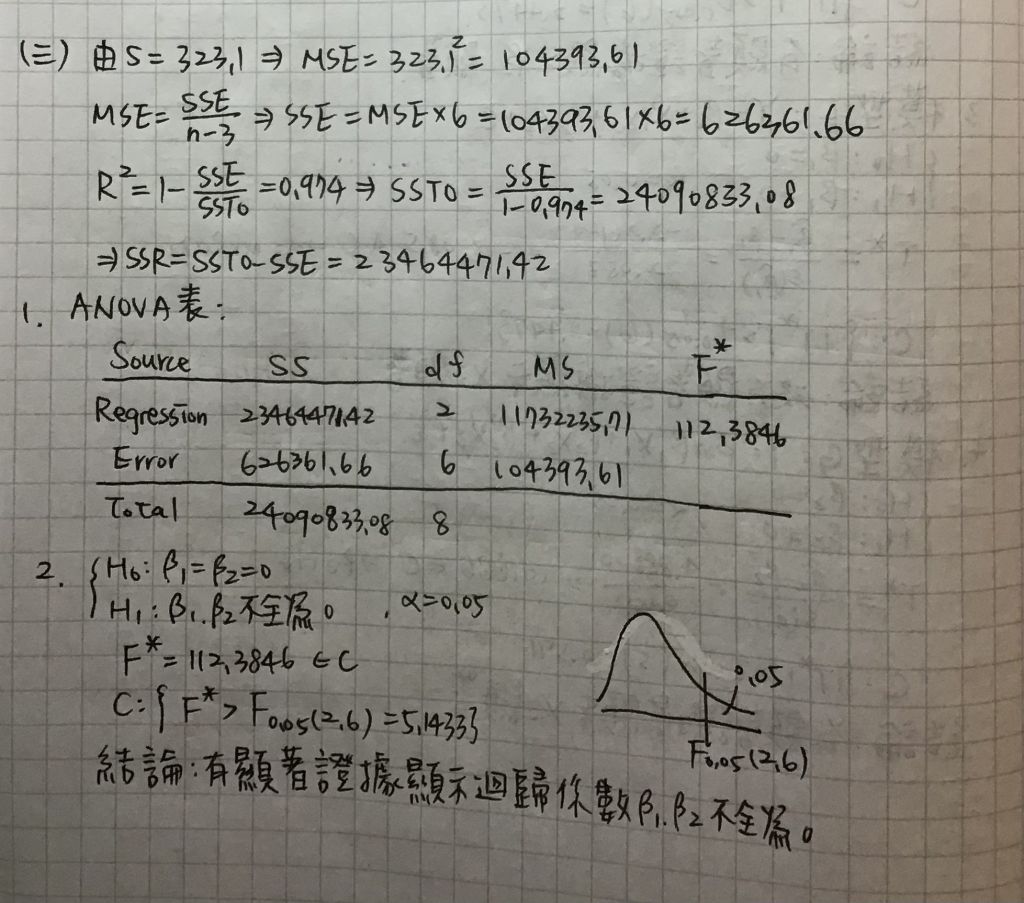 (三) 由S = 323,1 ⇒ MSE = 323,1² = 104393,61
MSE = SSE/n-3 ⇒ SSE = MSE×6 = 104393,61×6 = 626361.66
R² = 1 - SSE/SSTO = 0,974 ⇒ SSTO = SSE/1-0,974 = 24090833,08
⇒ SSR = SSTO-SSE = 23464471,42
1. ANOVA表:
Source SS df MS F*
Regression 23464471,42 2 11732235,71 112,3846
Error 626361.66 6 104393,61
Total 24090833,08 8
2. { H₀: β₁ = β₂ = 0
H₁: β₁.β₂不全為0 , α=0,05
F* = 112,3846 ∈ C
C: { F* > F0,05(2,6) = 5,1433}
0,05
F0,05(2,6)
結論:有顯著證據顯示迴歸係數β₁.β₂不全為0